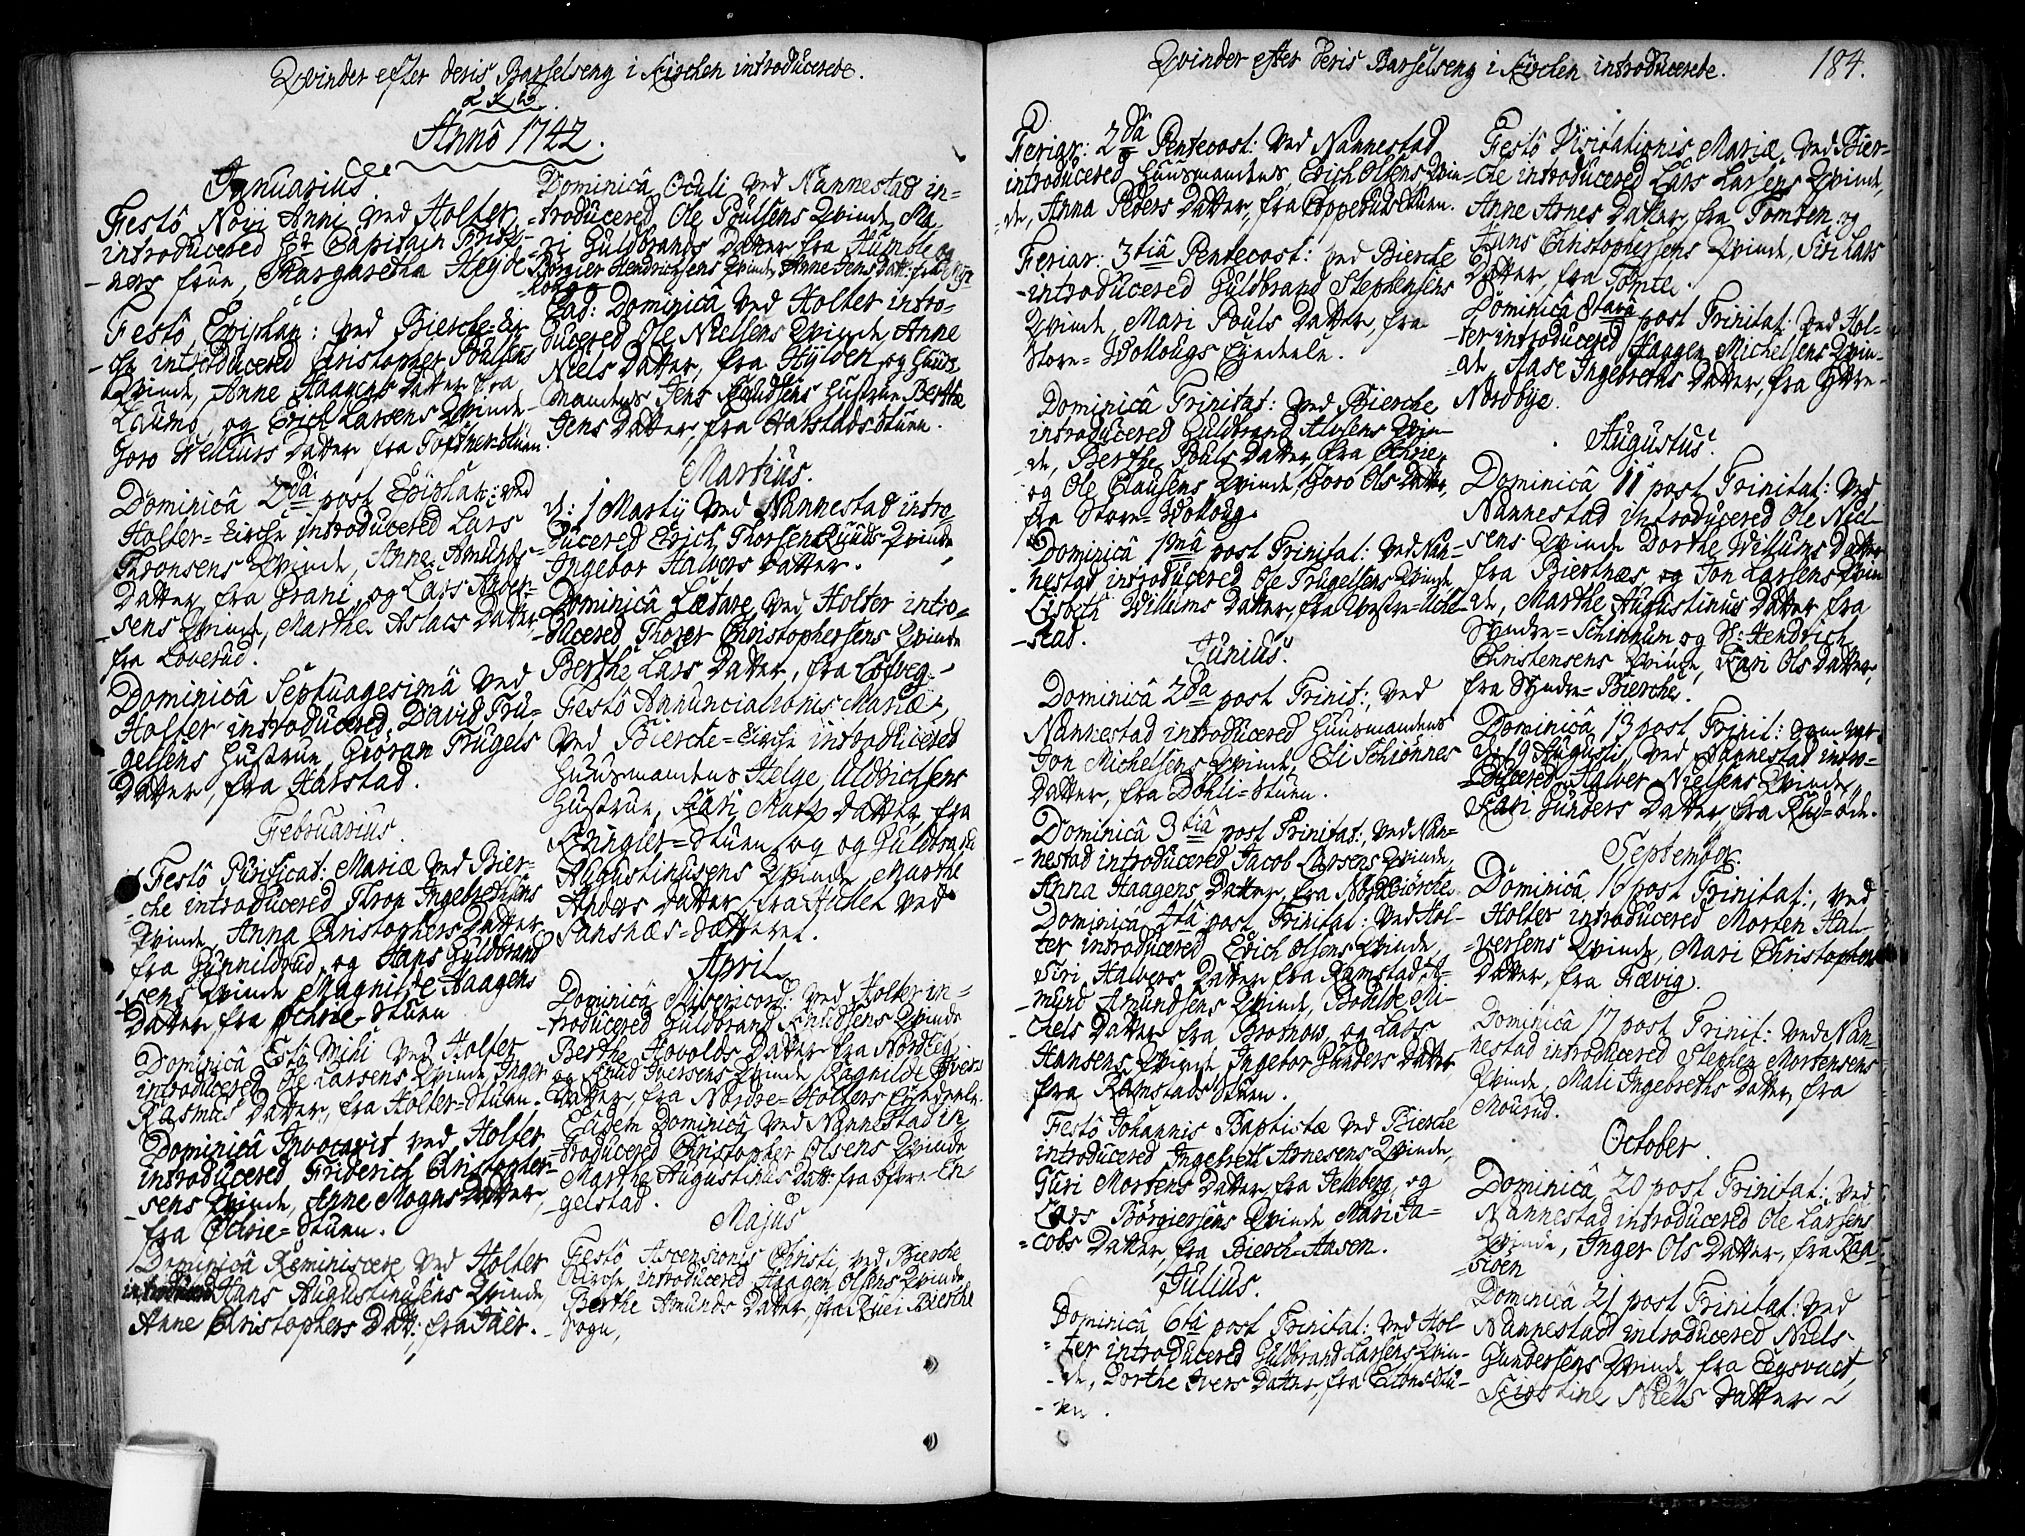 Qvinder efter deris Barselseng i Kirchen introducerede.
Anno 1742.
Januarius
Festo Novi Anni, ved Holter
introducered Hr Capitain
-ners frue, Margaretha Heyde
Festo Epiphan: ved Bierche-Kir-
-che introducered Christopher Poulsens
Qvinde, Anne Haagens Datter fra
og Erich Larsens Qvinde
Goro Willums Datter fra
Dominica 2da post Epiphan: ved
Holter-Kirche introducered Lars
Thronsens Qvinde, Anne Amunds
Datter fra Grani, og Lars Ander-
-sens Qvinde, Marthe Aslacs Datter
fra Loverud.
Dominica Septuagesima ved
Holter introducered, David Tru-
-gelsens Hustrue, Giöran Trugels
Datter, fra Harstad.
Februarius.
Festo Purificat: Mariæ ved Bier-
-che introducered Thron Ingebrethsens
Qvinde, Anna Christophers Datter
fra Gunnildrud, og Hans Guldbrand
sens Qvinde Magnilde Haagens
Datter fra Öchrie-Stuen
Dominica Esto Mihi ved Holter
introducered Ole Larsens Qvinde Inger
Rasmus Datter, fra Holter-Stuen.
Dominica Invocavit ved Holter
introducered Friderich Christopher-
-sens Qvinde, Anne Mogns Datter,
fra Öchrie-Stuen.
Dominica Reminiscere ved Holter
introducered Hans Augustinusens Qvinde,
Anne Christophers Datt: fra Jaer.
Dominica Oculi ved Nannestad in-
-troducered, Ole Poulsens Qvinde, Ma-
ri Guldbrands Datter fra Humble og
Börgier Hendrichsens Qvinde Anne Jens Datt: fra
Ead: Dominica ved Holter intro-
ducered Ole Nielsens Qvinde Anne
Niels Datter, fra Hylden og Huus-
mandens Jens Knudsens Hustrue Berthe
Jens Datter, fra Harstads Stuen.
Martius.
d: 1 Martij ved Nannestad intro-
ducered Erich Thorsen Ruuds Qvinde
Ingebor Halvors Datter.
Dominica Lætare ved Holter intro-
-ducered Thorer Christophersens Qvinde
Berthe Lars Datter, fra Lofveg.
Festo Annunciationis Mariæ,
ved Bierche-Kirche introducered
Huusmandens Helge Uldrichsens
Hustrue, Kari Marts Datter, fra
Ringler-Stuen og og Guldbrand
Augustinusens Qvinde Marthe
Anders Datter fra ved
Sansnæs-Sætteret.
April
Dominica Misericord: ved Holter in-
-troducered Guldbrand Knudsens Qvinde
Berthe Hovolds Datter fra Nordleg
og Knud Iversens Qvinde Ragnilde Ivers
Datter, fra Nordre-Holters Eyedeele.
Eadem Dominica ved Nannestad in
-troducered Christopher Olsens Qvinde
Marthe Augustinus Datt: fra Store-En-
-gelstad.
Majus
Festo Ascensionis Christi, ved Bierche
Kirche, introducered Haagen Olsens Qvinde
Berthe Amunds Datter, fra Ruei Bierche
Sogn,
Qvinder efter deris Barselseng i Kirchen introducerede.
184.
Feriar: 2da Pentecost: ved Nannestad
introducered Huusmandens, Erich Olsens Qvin-
de, Anna Peders Datter, fra Copperuds Stuen.
Feriar: 3tia Pentecost: ved Bierche
-introducered Guldbrand Stephensens
Qvinde, Mari Pouls Datter, fra
Store-Wollougs Eyedeele.
Dominica Trinitat: ved Bierche
introducered Guldbrand Alvsens Qvin-
-de, Berthe Pouls Datter, fra Öchrie,
og Ole Clausens Qvinde, Goro Ols Datter,
fra Store-Wolloug.
Dominica 1ma post Trinitat: ved Nan-
-nestad introducered Ole Trugelsens Qvinde,
Lisbeth Willums Datter, fra Westre-
-stad.
Junius.
Dominica 2da post Trinit:, ved
Nannestad introducered Huusmandens
Jon Michelsens Qvinde, Eli Schiönnes
Datter, fra Dohli-Stuen.
Dominica 3tia post Trinitat:, ved Nan-
-nestad introducered Jacob Larsens Qvinde,
Anna Haagens Datter, fra
Dominica 4ta post Trinitat: ved Hol-
ter introducered Erich Olsens Qvinde,
Siri Halvors Datter fra Ramstad, A-
mund Amundsens Qvinde, Bodelte Mi-
chels Datter, fra og Lars
Hansens Qvinde Ingebor Gunders Datter
fra Ramstads Stuen.
Festo Johannis Baptistæ ved Bierche
introducered Ingebreth Arnesens Qvinde,
Guri Mortens Datter, fra Jelleberg, og
Lars Börgiersens Qvinde Mari Ja-
-cobs Datter, fra Bierch-Aasen.
Julius.
Dominica 6ta post Trinitat: ved Hol-
-ter introducered Guldbrand Larsens Qvin-
-de, Dorthe Ivers Datter, fra Stu-
-en.
Festo Visitationis Mariæ, ved Bier-
-che introducered Lars Larsens Qvinde,
Anne Arnes Datter, fra Tomten, og
Hans Christophersens Qvinde, Siri Lars
Datter, fra Tomte.
Dominica 8tava post Trinitat: ved Hol-
-ter introducered Haagen Michelsens Qvin-
-de, Aase Ingebreths Datter, fra Yttre-
Nordbye.
Augustus.
Dominica 11 post Trinitat: ved
Nannestad introducered Ole Niel-
sens Qvinde Dorthe Willums Datter
fra Biertnæs, og Jon Larsens Qvin
-de, Marthe Augustinus Datter fra
Syndre-Schinnum og Sl: Hendrich
Christensens Qvinde, Kari Ols Datter,
fra Syndre-Bierche.
Dominica 13 post Trinit: som var
d: 19 Augusti, ved Nannestad intro-
-ducered Halvor Nielsens Qvinde,
Kari Gunders Datter, fra Rud-øde.
September.
Dominica 16 post Trinitat:, ved
Holter introducered Morten Hal-
-versens Qvinde, Mari Christophers
Datter, fra Fævig.
Dominica 17 post Trinit: ved Nan-
nestad introducered Stephen Mortensens
Qvinde, Mali Ingebreths Datter, fra
Mourud.
October
Dominica 20 post Trinitat:, ved
Nannestad introducered Ole Larsens
Qvinde, Inger Ols Datter, fra Raa-
-sioen
Dominica 21 post Trinitat: ved
Nannestad introducered Niels
Gundersens Qvinde fra
Kirstine Niels Datter